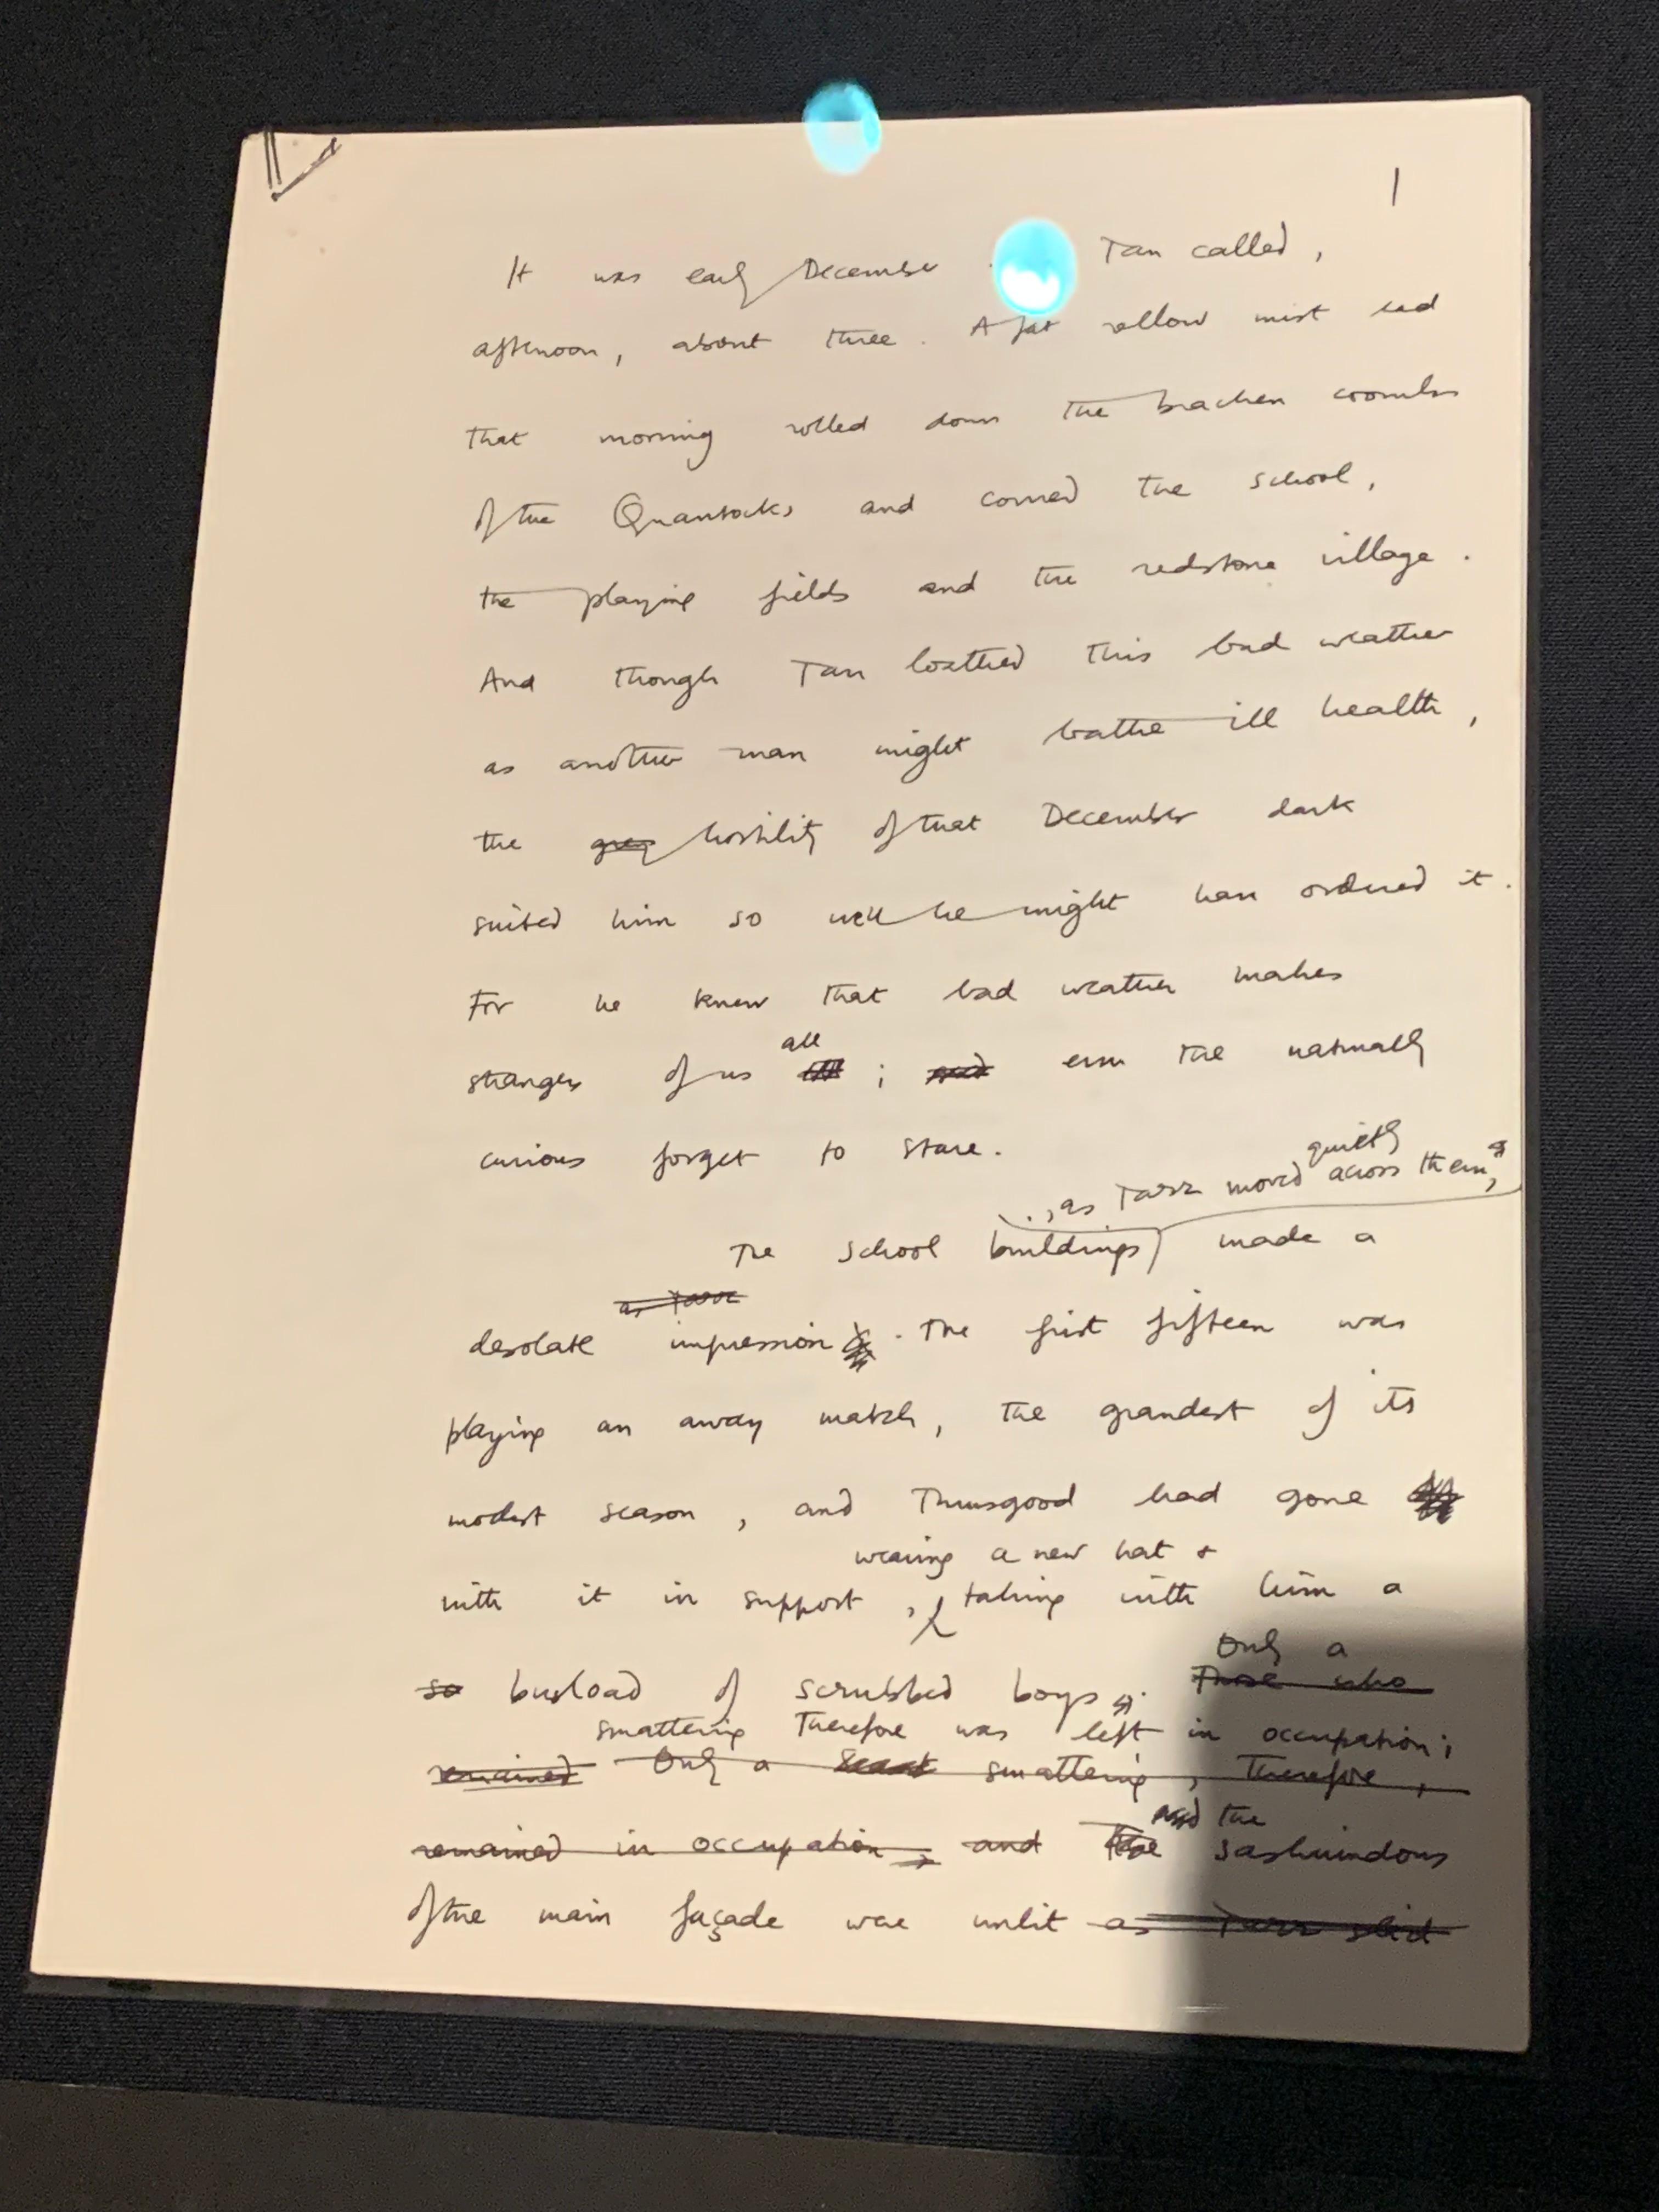 1
It was early December Tarr called,
afternoon, about three. A fat yellow mist had
that morning rolled down the bracken coombs
of the Quantocks and covered the school,
the playing fields and the redstone village.
And though Tarr loathed this bad weather
as another man might loathe ill health,
the grey hostility of that December dark
suited him so well he might have ordered it.
For he knew that bad weather makes
all
strangers of us ; and even the naturally
curious forget to stare.
quietly
, as Tarr moved across them,
The school buildings made a
as Tarr
desolate impression. The first fifteen was
playing an away match, the grandest of its
modest season, and Thursgood had gone
wearing a new hat &
with it in support, taking with him a
Only a
so busload of scrubbed boys. Those who
smattering therefore was left in occupation;
remained Only a smattering, therefore,
and the
remained in occupation, and the sashwindows
of the main façade were unlit as Tarr slid